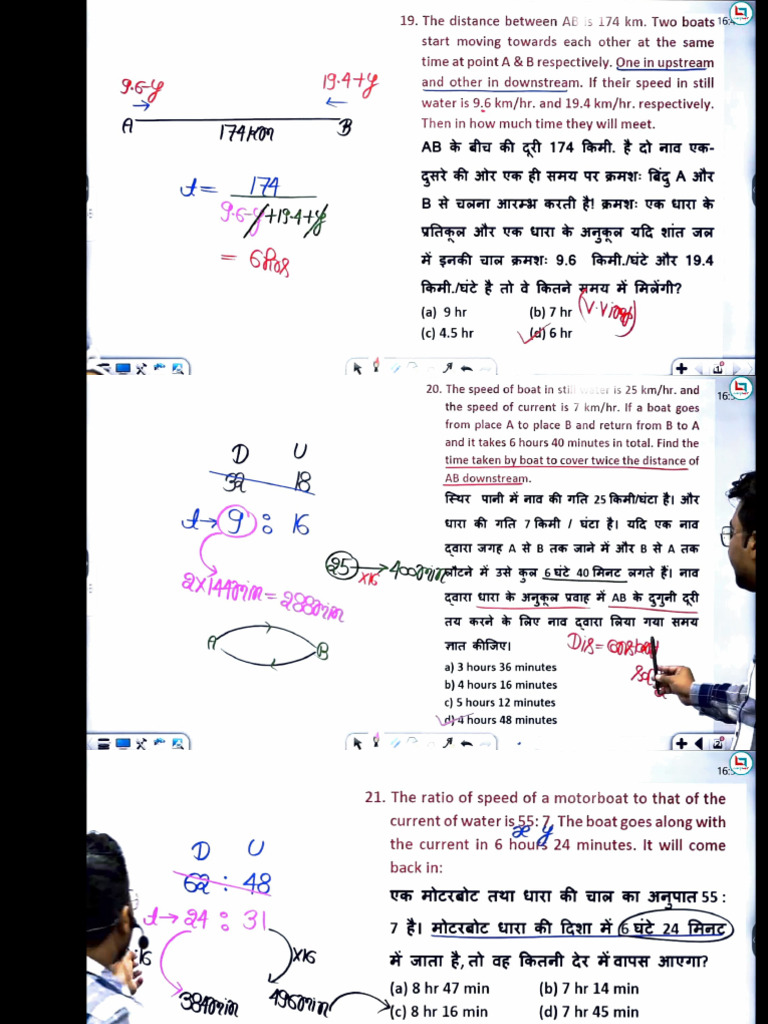 19. The distance between AB is 174 km. Two boats
start moving towards each other at the same
time at point A & B respectively. One in upstream
and other in downstream. If their speed in still
water is 9.6 km/hr. and 19.4 km/hr. respectively.
Then in how much time they will meet.
AB के बीच की दूरी 174 किमी. है दो नाव एक-
दुसरे की ओर एक ही समय पर क्रमशः बिंदु A और
B से चलना आरम्भ करती है! क्रमशः एक धारा के
प्रतिकूल और एक धारा के अनुकूल यदि शांत जल
में इनकी चाल क्रमशः 9.6 किमी./घंटे और 19.4
किमी./घंटे है तो वे कितने समय में मिलेंगी?
(a) 9 hr (b) 7 hr
(c) 4.5 hr (d) 6 hr
9.6-y 19.4+y
A B
174km
t = 174
9.6-y+19.4+y
= 6hrs
20. The speed of boat in still water is 25 km/hr. and
the speed of current is 7 km/hr. If a boat goes
from place A to place B and return from B to A
and it takes 6 hours 40 minutes in total. Find the
time taken by boat to cover twice the distance of
AB downstream.
स्थिर पानी में नाव की गति 25 किमी/घंटा है। और
धारा की गति 7 किमी / घंटा है। यदि एक नाव
द्वारा जगह A से B तक जाने में और B से A तक
लौटने में उसे कुल 6 घंटे 40 मिनट लगते हैं। नाव
द्वारा धारा के अनुकूल प्रवाह में AB के दुगुनी दूरी
तय करने के लिए नाव द्वारा लिया गया समय
ज्ञात कीजिए।
a) 3 hours 36 minutes
b) 4 hours 16 minutes
c) 5 hours 12 minutes
d) 4 hours 48 minutes
D U
32 18
t→ 9 : 16
25 ×16 400min
2×144min = 288min
A B
Dis = constant
21. The ratio of speed of a motorboat to that of the
current of water is 55: 7. The boat goes along with
the current in 6 hours 24 minutes. It will come
back in:
एक मोटरबोट तथा धारा की चाल का अनुपात 55 :
7 है। मोटरबोट धारा की दिशा में 6 घंटे 24 मिनट
में जाता है, तो वह कितनी देर में वापस आएगा?
(a) 8 hr 47 min (b) 7 hr 14 min
(c) 8 hr 16 min (d) 7 hr 45 min
x y
D U
62 : 48
t→ 24 : 31
×16
384min 496min